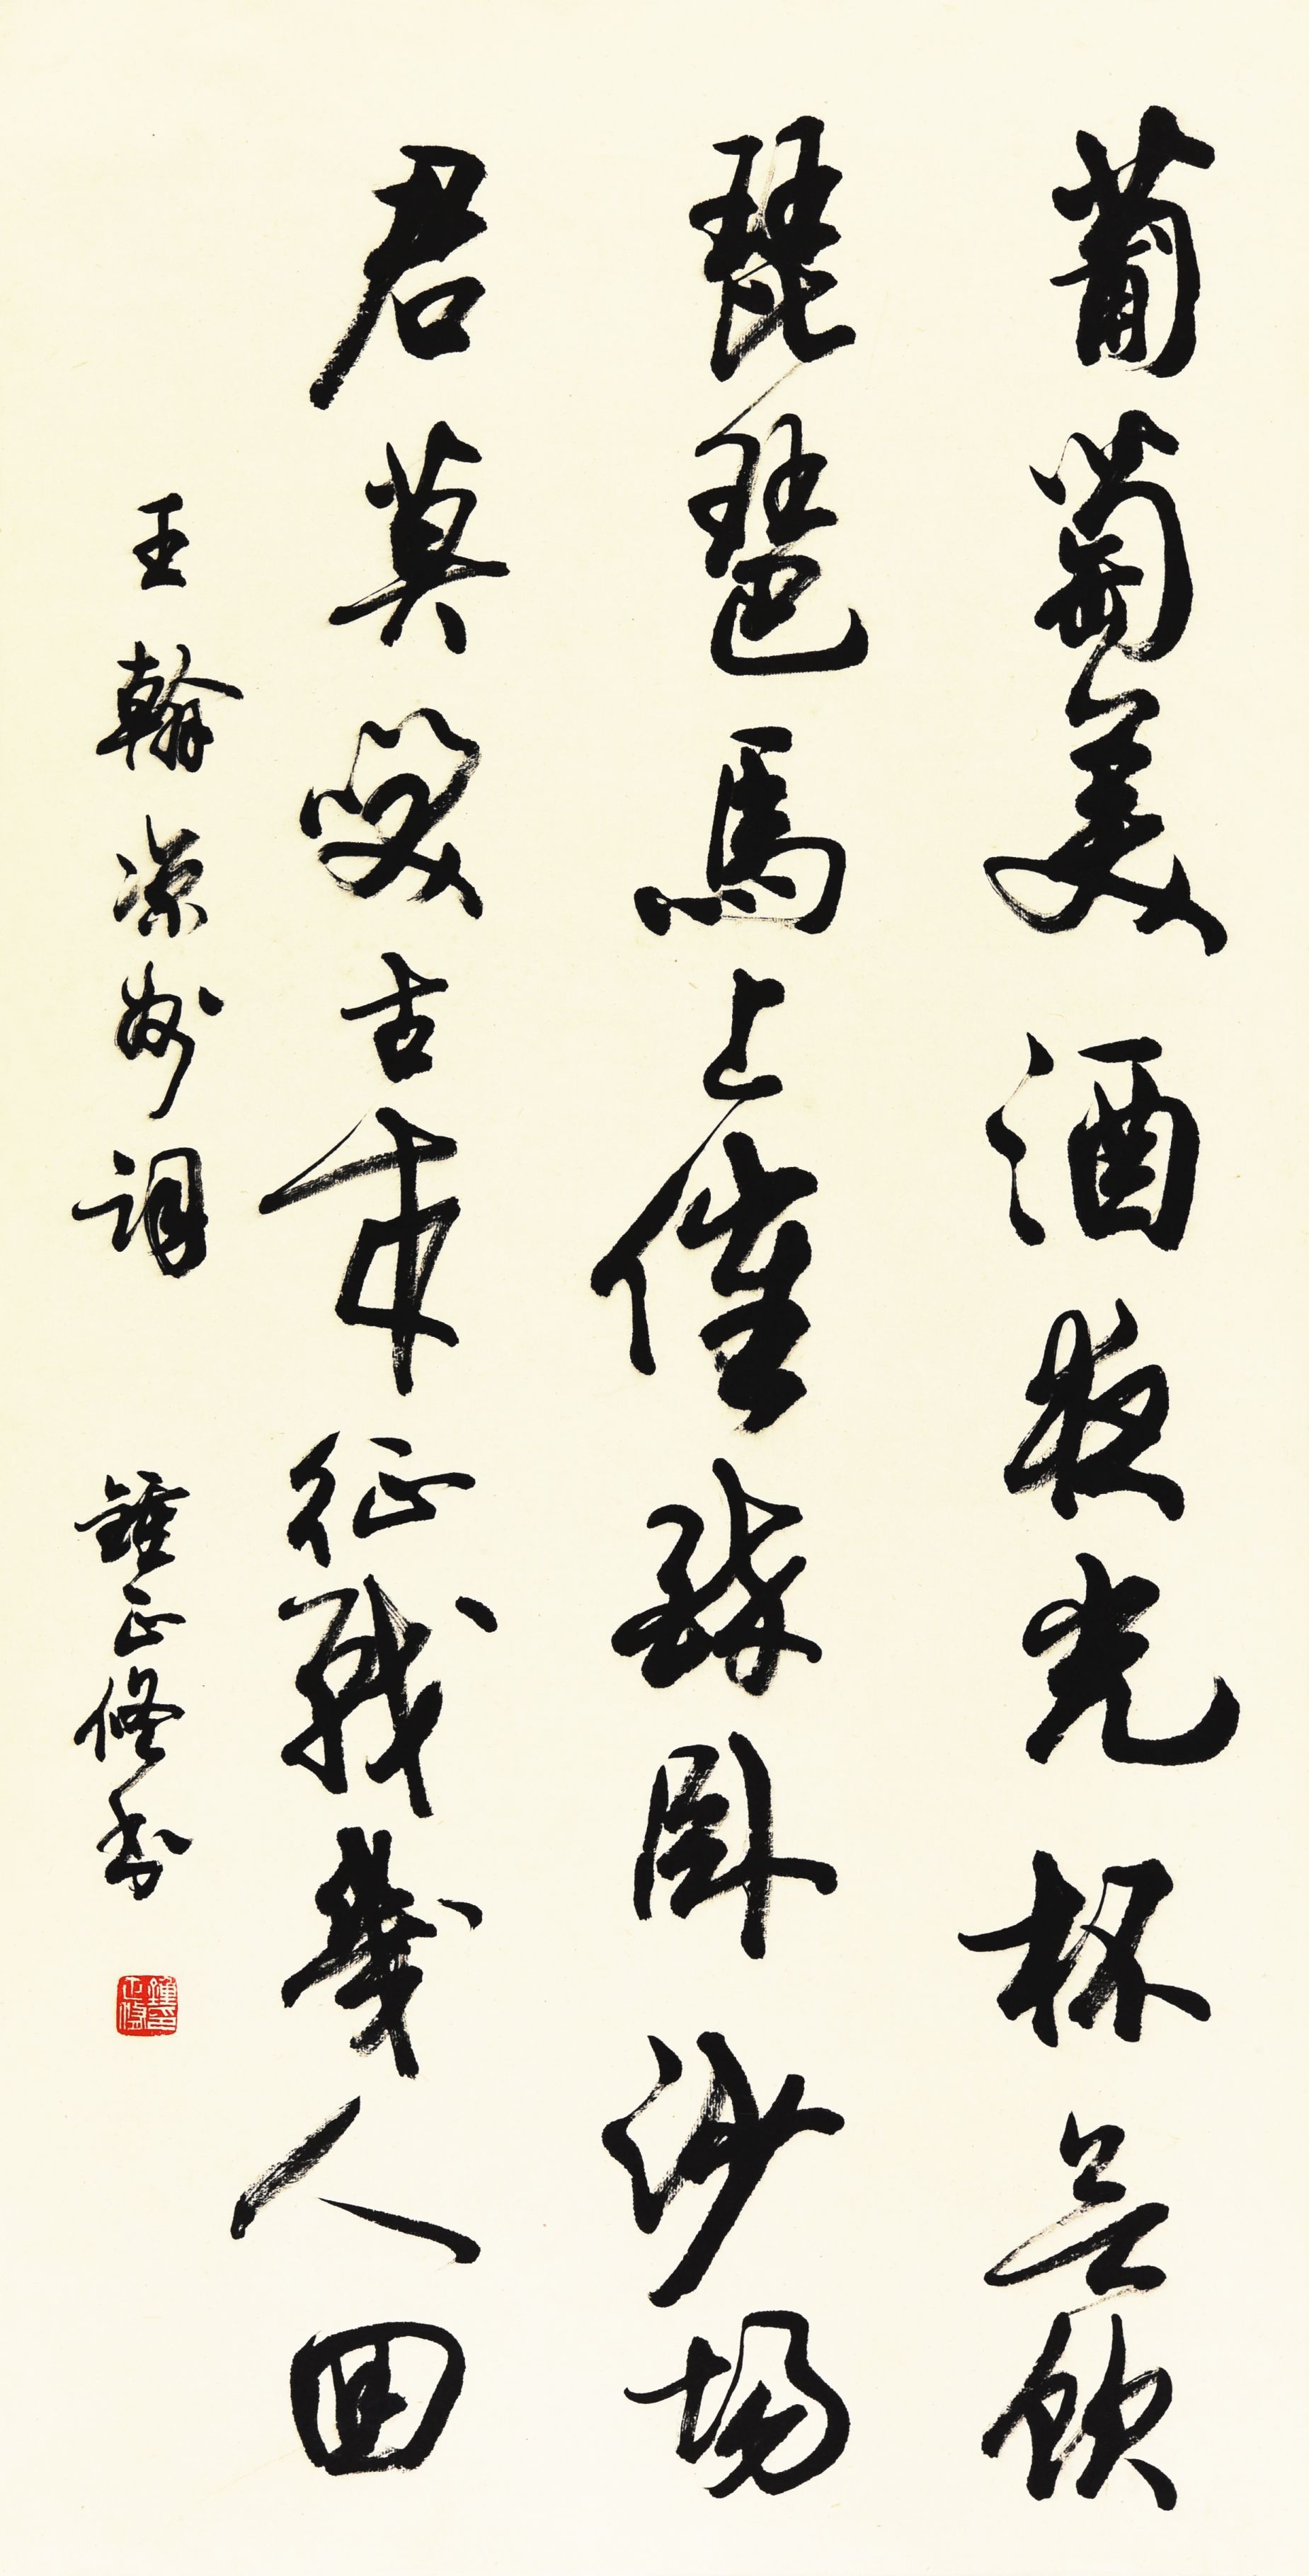 葡萄美酒夜光杯欲飲
琵琶馬上催醉卧沙場
君莫笑古來征戰幾人回
王翰凉州詞 鍾正修書
鍾正修印